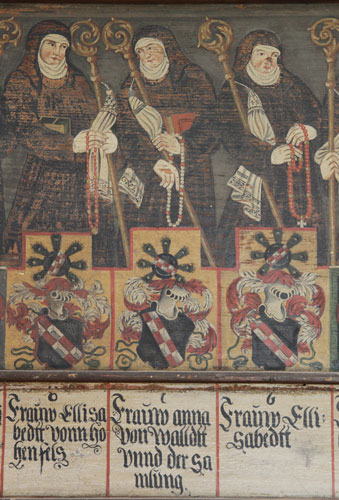 Frauw Ellisa
bedtt vonn ho
hen fels
Frauw anna
von Walldtt
vnnd der Sa
mlung.
Frauw Elli:
sabedtt